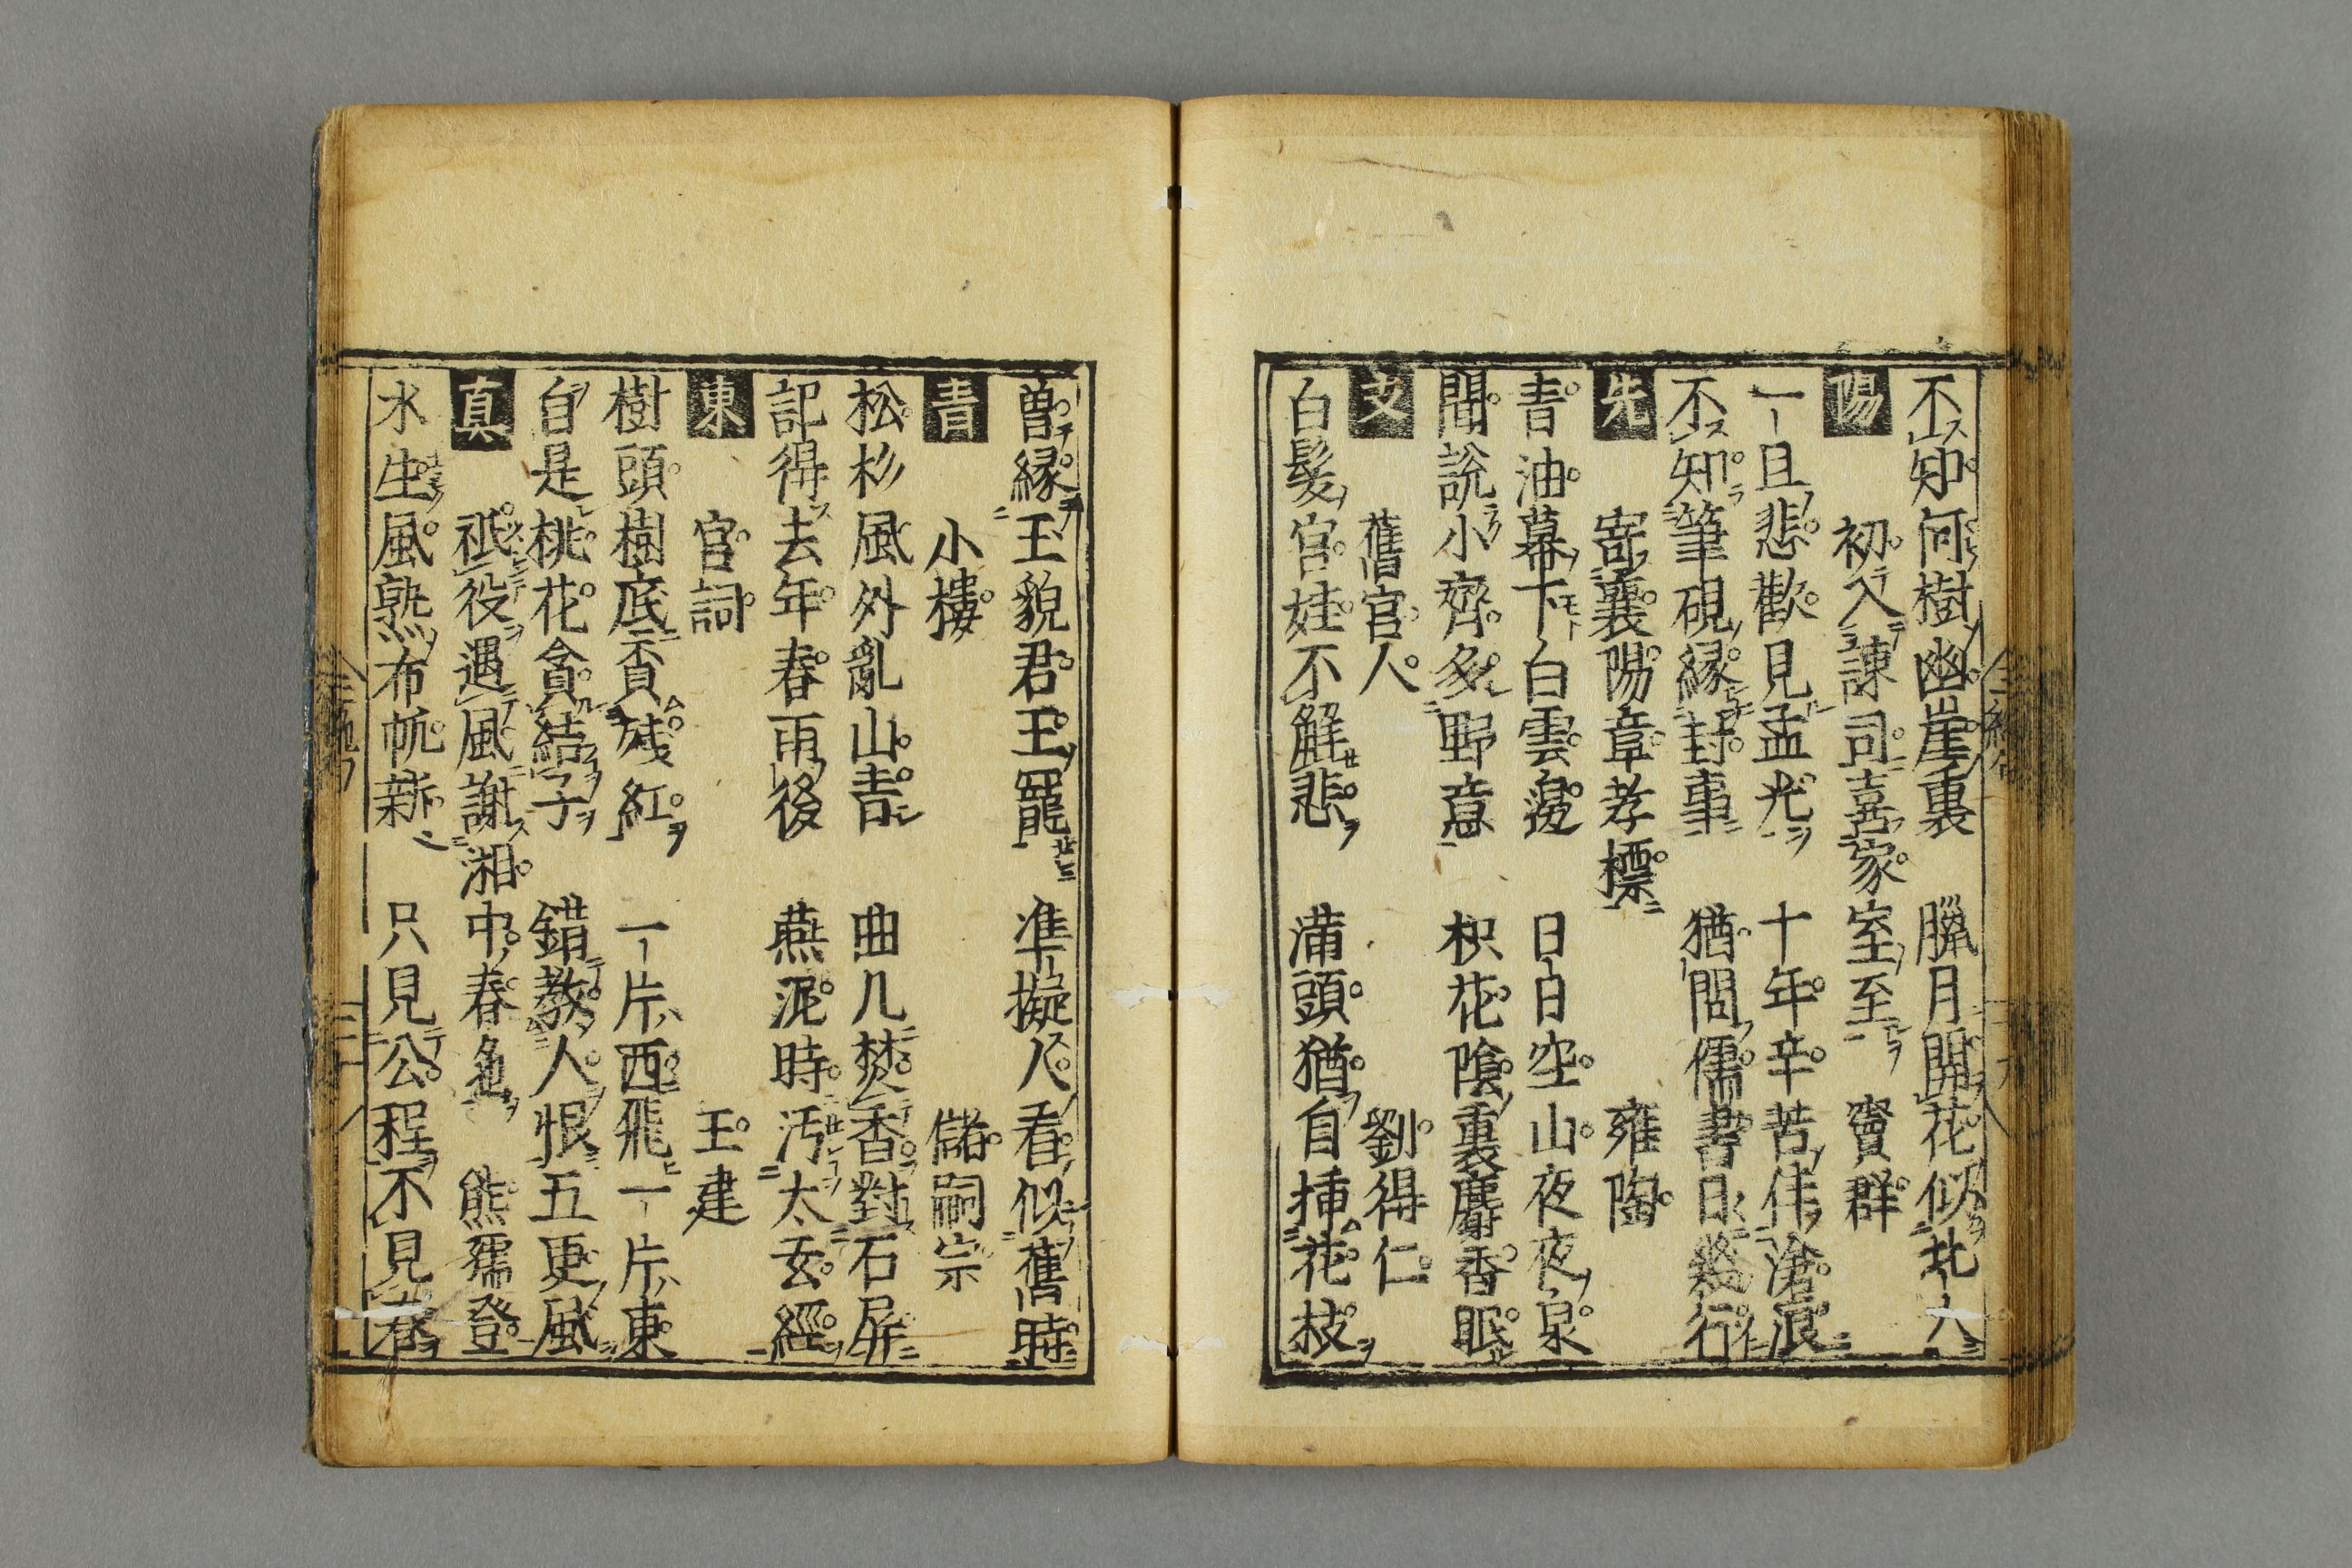 不知何樹幽崖裏　臘月開花似北人
陽　初入諫司喜家室至　竇群
一旦悲歡見孟光　十年辛苦伴滄浪
不知筆硯縁封事　猶問傭書日幾行
先　寄襄陽章孝標　雍陶
青油幕下白雲邊　日日空山夜夜泉
聞説小齋多野意　枳花陰裏麝香眠
支　舊宮人　劉得仁
白髮宮娃不解悲　滿頭猶自插花枝
曽縁玉貌君王寵　準擬人看似舊時
青　小樓　儲嗣宗
松杉風外亂山青　曲几焚香對石屏
記得去年春雨後　燕泥時汚太玄經
東　宮詞　王建
樹頭樹底覓殘紅　一片西飛一片東
自是桃花貪結子　錯教人恨五更風
真　祗役遇風謝湘中春色　熊孺登
水生風熟布帆新　只見公程不見春